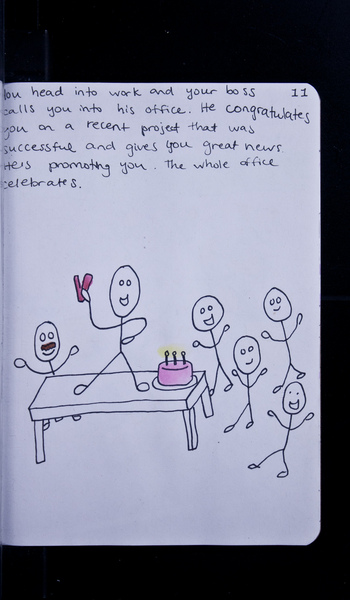 You head into work and your boss 11
calls you into his office. He congratulates
you on a recent project that was
successful and gives you great news.
He's promoting you. The whole office
celebrates.